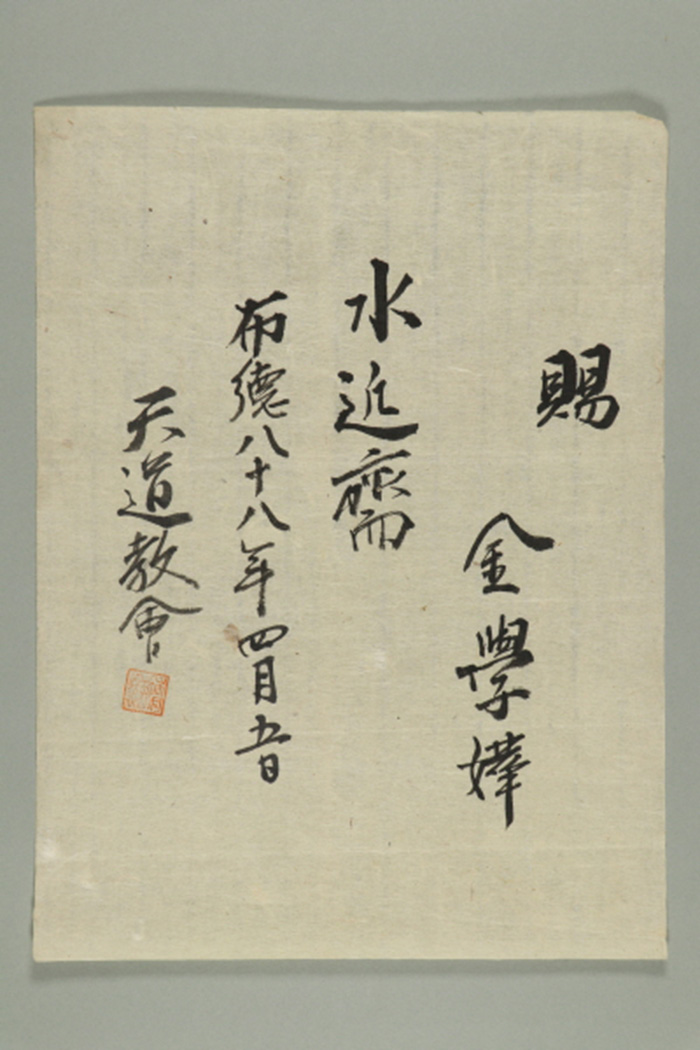 賜
金學嬅
水近齋
布德八十八年四月五日
天道教會